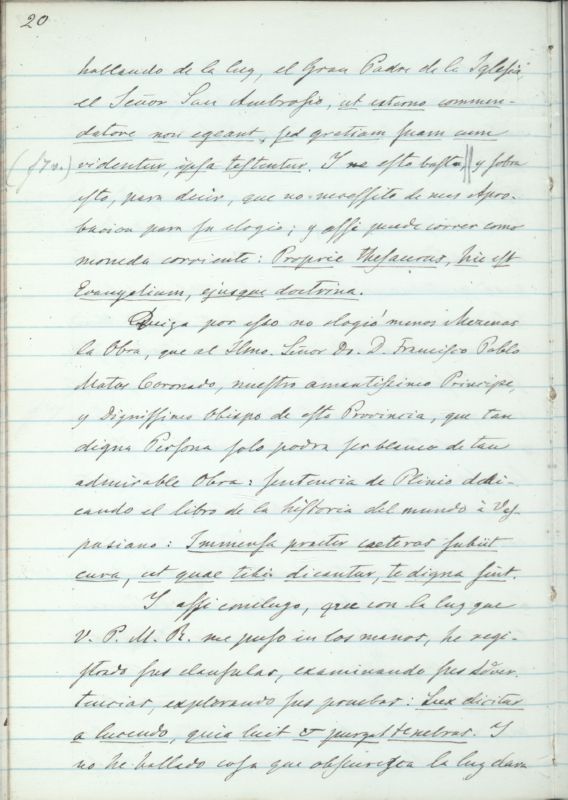 20
hallando de la luz, el Gran Padre de la Iglesia
el Señor San Ambrosio, ut externo commen-
datore non egeant, sed gratiam suam cum
videntur, ipsa testentur. Y esto basta, || y sobra
(f 7 v.)
esto, para decir, que no necessito de mas Apro-
bacion para su elogio; y assi puede correr como
moneda corriente: Proprie thesaurus, hic est
Evangelium, ejusque doctrina.
por esso no eligió menos Mecenas
la Obra, que al Ilmo. Señor Dr. D. Francisco Pablo
Matos Coronado, nuestro amantissimo Principe,
y Dignissimo Obispo de esta Provincia, que tan
digna Persona solo podra ser blanco de tan
admirable Obra: sentencia de Plinio dedi-
cando el libro de la historia del mundo à Ves
pasiano: Immensa praeter caeteras subiit
cura, ut quae tibi dicantur, te digna sint.
Y assi concluyo, que con la luz que
V. P. M. R. me puso en las manos, he regi-
strado sus clausulas, examinando sus adver
tencias, explorando sus pruebas: Lux dicitur
a lucendo, quia luit & purgat tenebras. Y
no he hallado cosa que obscurezca la luz dam